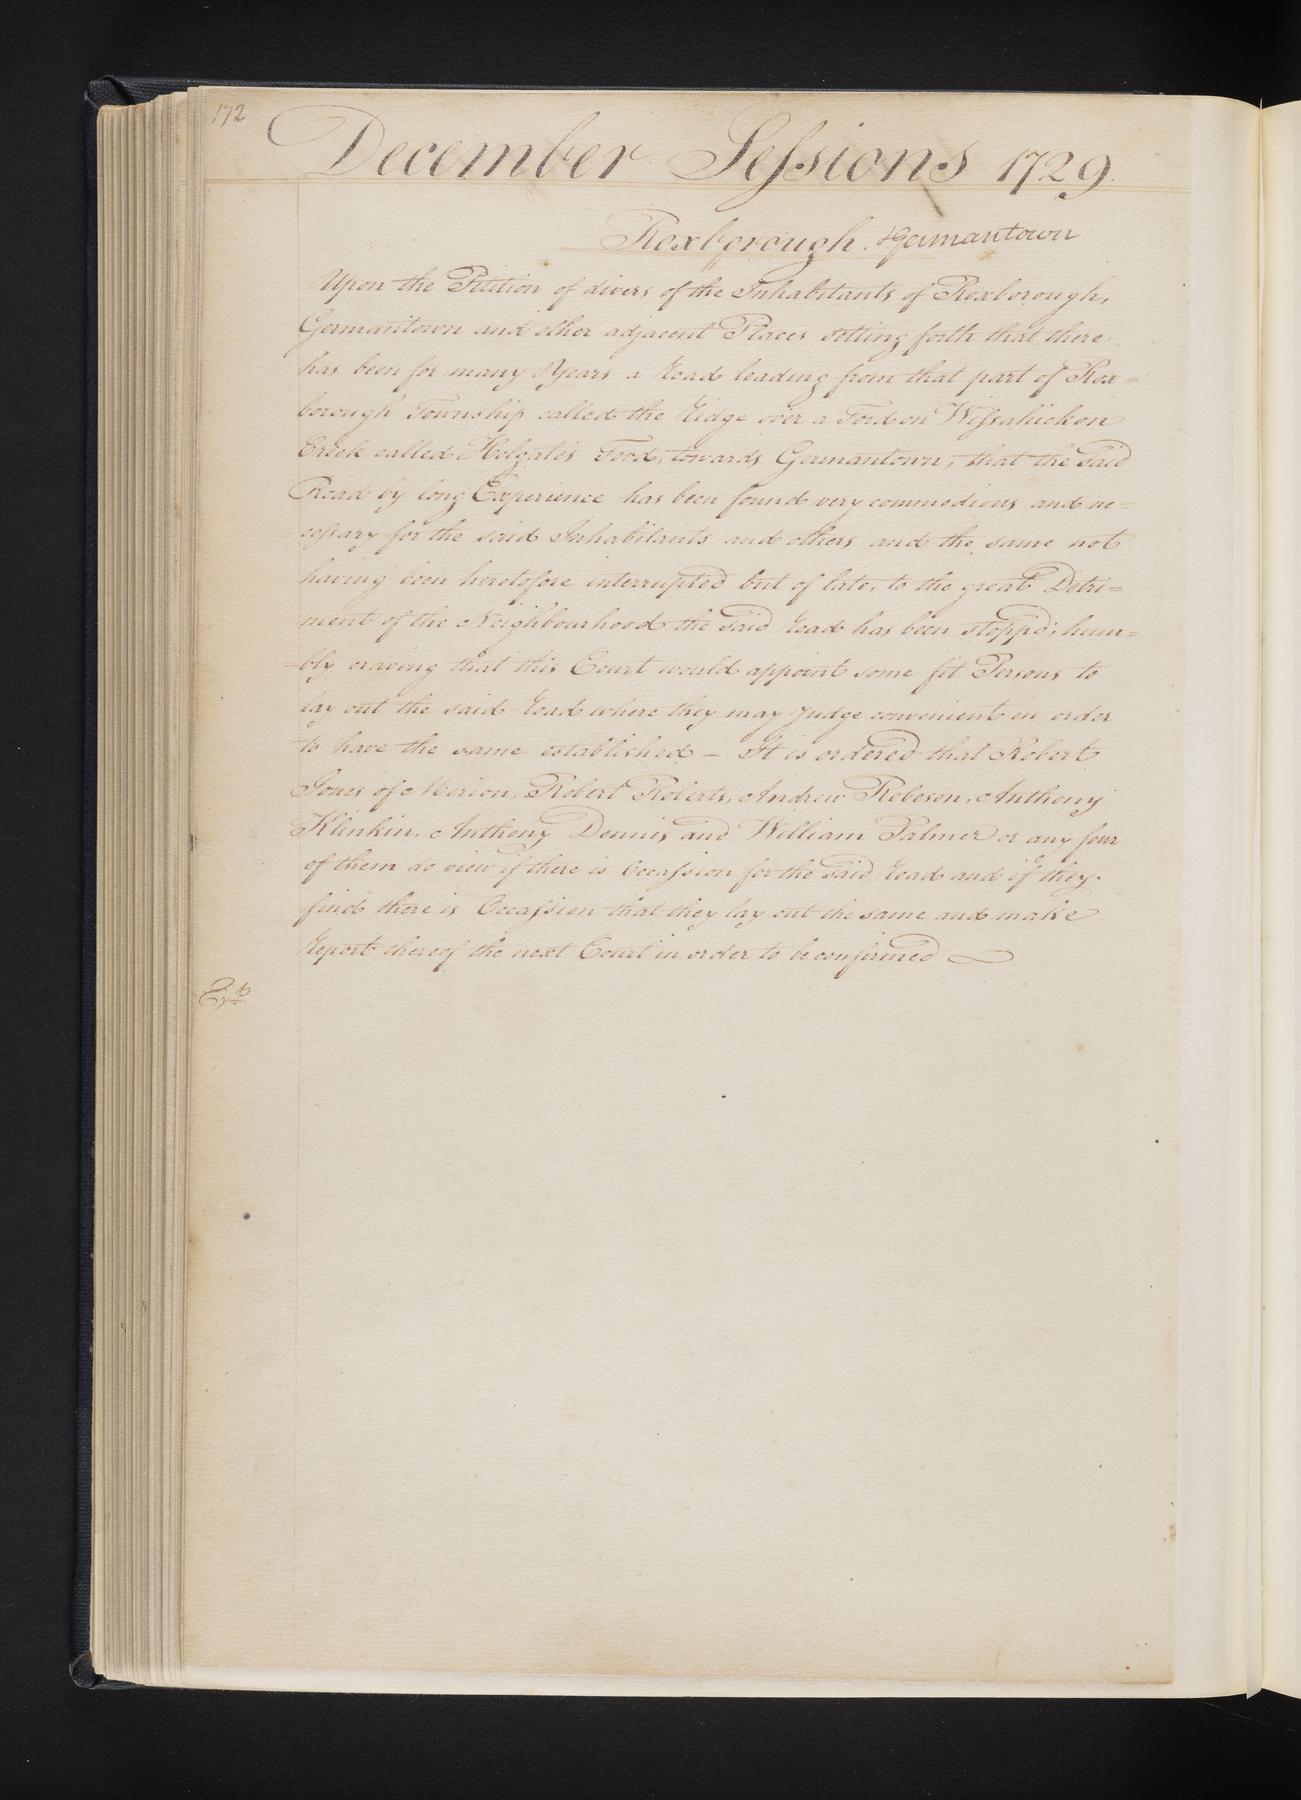 172
December Sessions 1729.
Roxborough. & Germantown
Upon the Petition of divers of the Inhabitants of Roxborough,
Germantown and other adjacent Places setting forth that there
has been for many Years a Road leading from that part of Rox=
borough Township called the Ridge over a Ford on Wissahickon
Creek called Holgate's Ford, towards Germantown, that the Said
Road by long Experience has been found very commodious and ne=
cessary for the said Inhabitants and others and the same not
having been heretofore interrupted but of late, to the great Detri=
ment of the Neighbourhood the Said Road has been stopp'd; hum=
=bly craving that this Court would appoint some fit Persons to
lay out the said Road where they may judge convenient in order
to have the same established – It is ordered that Robert
Jones of Merion, Robert Roberts, Andrew Robeson, Anthony
Klinkin, Anthony Dennis and William Palmer or any four
of them do view if there is Occassion for the Said Road and if they
find there is Occassion that they lay out the same and make
Report thereof the next Court in order to be confirmed
Exd